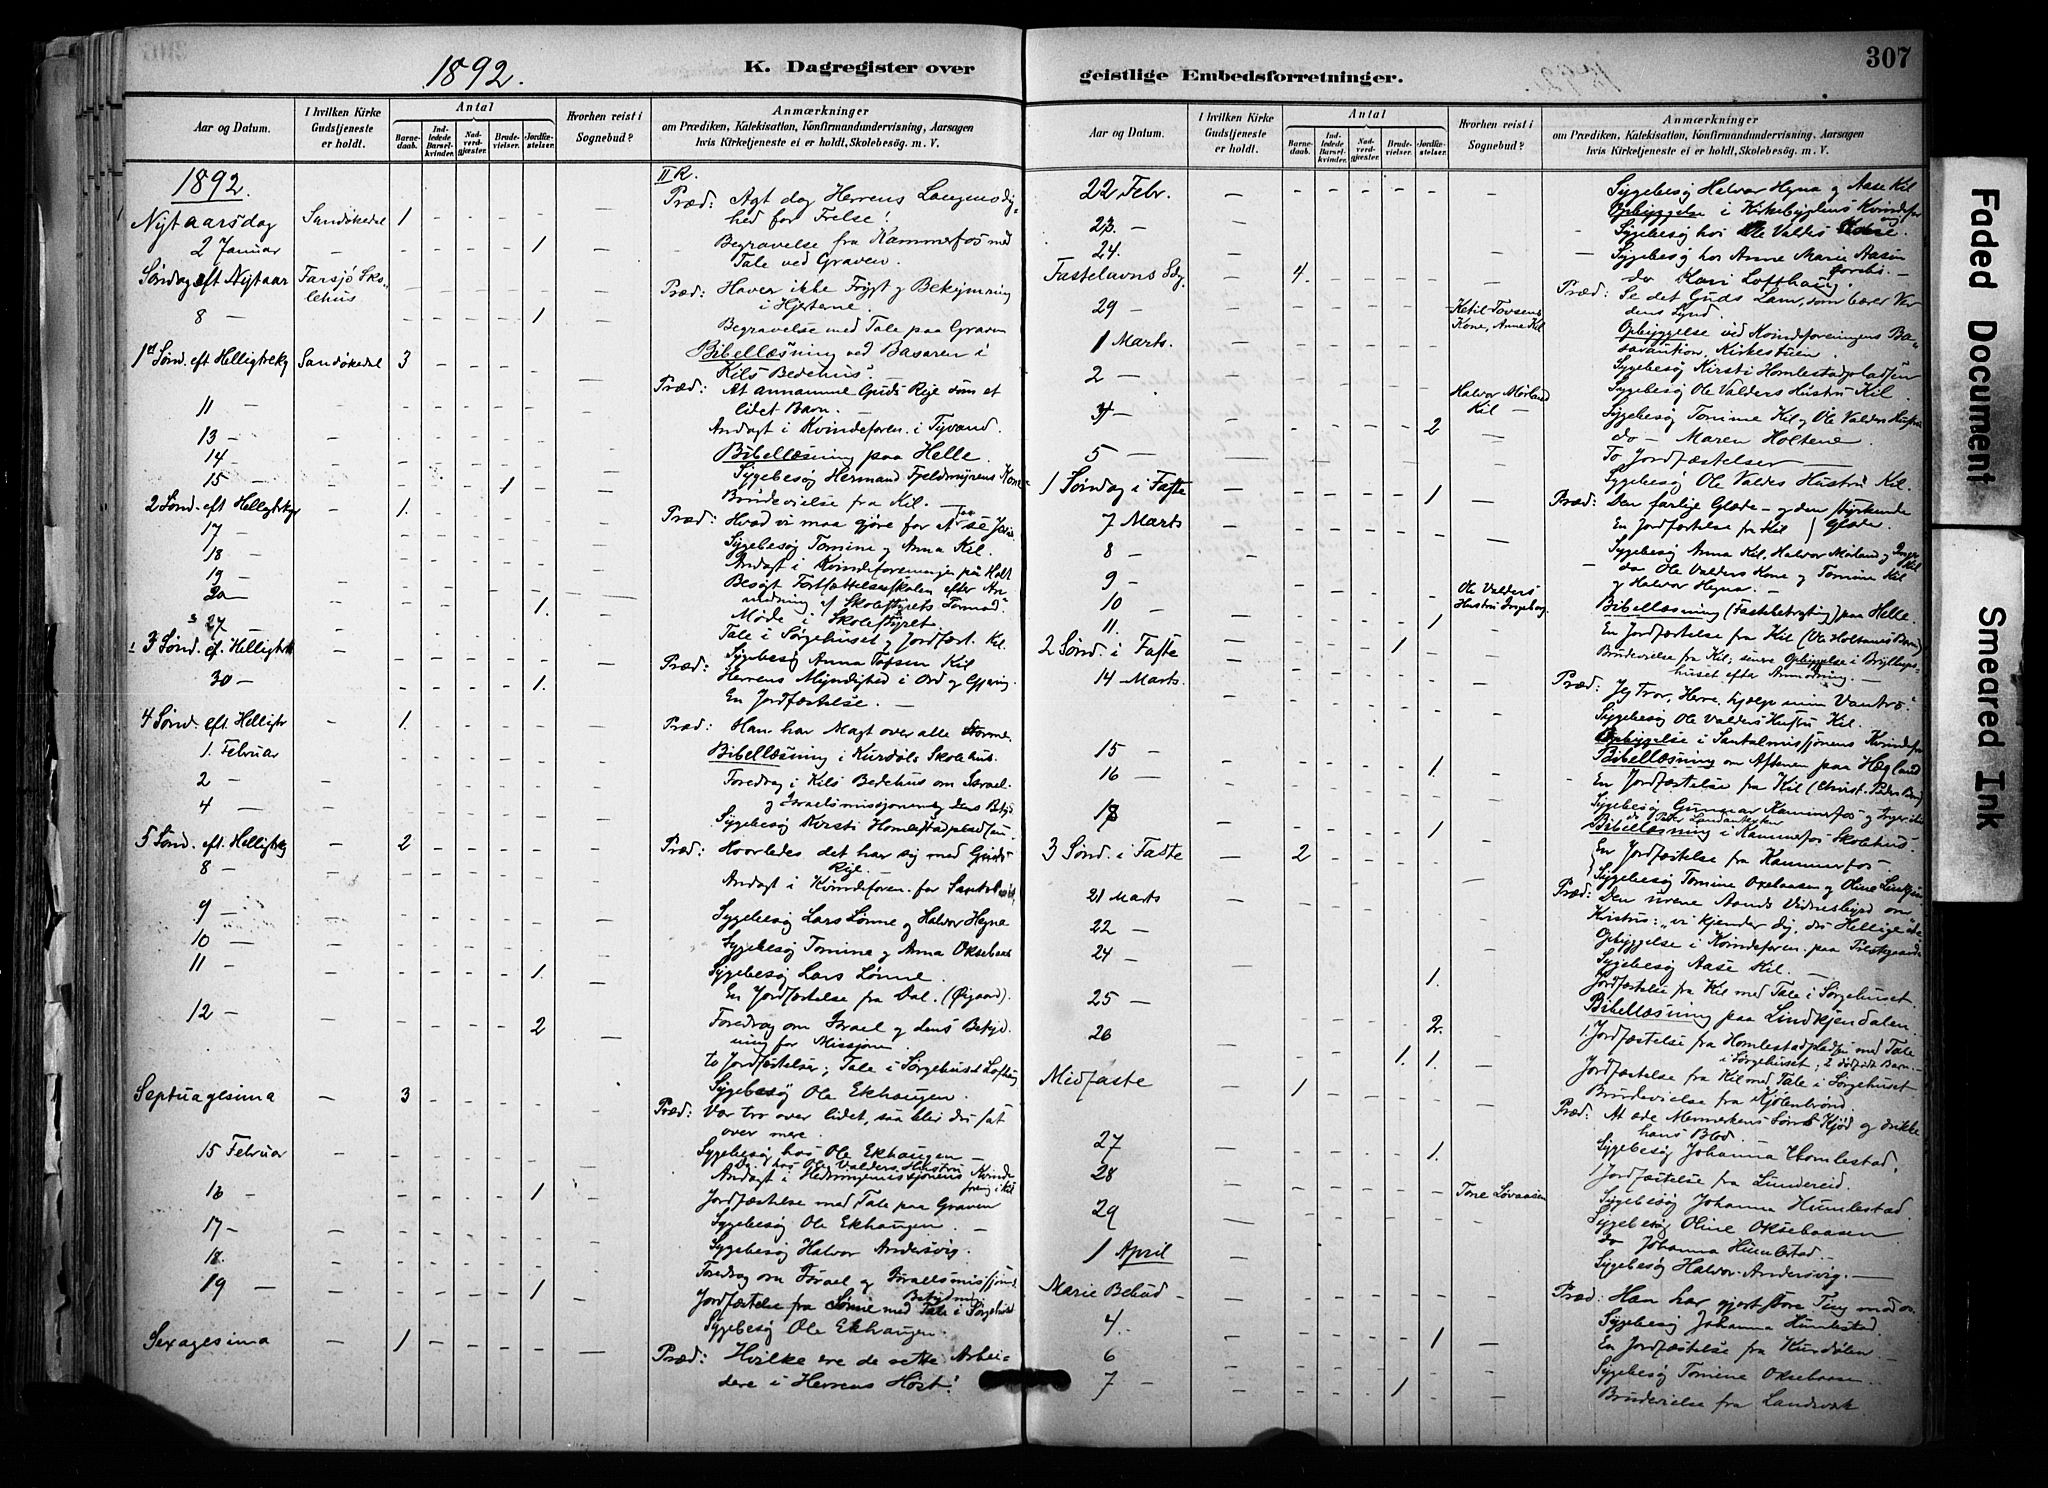 1892.
K. Dagregister over
Aar og Datum.
I hvilken Kirke Gudstjeneste er holdt.
Antal
Barnedaab.
Indledede Barselkvinder.
Nadverdgjæster.
Brudevielser.
Jordfæstelser.
Hvorhen reist i Sognebud?
Anmærkninger
om Prædiken, Katekisation, Konfirmandundervisning, Aarsagen
hvis Kirketjeneste ei er holdt, Skolebesøg. m. V.
1892.
II R.
Nytaarsdag Sandøkedal 1 Præd: Agt dog Herrens Langmodig-
hed for Frelse!
2 Januar 1 Begravelse fra Kammerfos med
Tale ved Graven.
Søndag eft Nytaar Farsjø Sko-
lehus Præd: Haver ikke Frygt og Bekymring
i Hjerterne.
8 — 1 Begravelse med Tale paa Graven
1st Sønd. eft Helligtrekg Sandøkedal 3 Bibellæsning ved Basaren i
Kils Bedehus.
Præd: At annamme Guds Rige som et
lidet Barn.
11 — Andagt i Kvindeforen. i Tyvand.
13 — Bibellæsning paa Helle.
14 — Sygebesøg Hermand Fjeldmyrens Kone
15 — 1 Brudevielse fra Kil.
2 Sønd. eft Helligtrekg 1. Præd: Hvad vi maa gjøre for at faa se
17 — Sygebesøg Tomine og Anna Kil.
18 — Andagt i Kvindeforeningen på Holt
19 — Besøgt Fortsættelsesskolen efter An-
modning af Skolestyrets Formand
20 — 1. Møde i Skolestyret
27 Tale i Sørgehuset og Jordfæst. Kil.
Sygebesøg Anna Tofsen Kil
3 Sønd. ef. Helligtrek Præd: Herrens Myndighed i Ord og Gjerning.
30 — 1. En Jordfæstelse.
4 Sønd. eft Helligtr 1. Præd: Han har Magt over alle Storme.
1. Februar Bibellæsning i Kurdøls Skolehus.
2 — Foredrag i Kils Bedehus om Israel
og Israelsmissjonen og dens Betyd.
4 — Sygebesøg Kirsti Homlestadpladsen
5 Sønd. eft. Helligtrekg 2 Præd: Hvorledes det har sig med Guds
Rige.
8 — Andagt i Kvindeforen. for Santalm
9 — Sygebesøg Lars Lønne og Halvor Heyna
10 — Sygebesøg Tomina og Anna Oksebaas
11 — 1. Sygebesøg Lars Lønne.
En Jordfæstelse fra Dal. (Øigaard).
12 — 2 Foredrag om Israel og dens Betyd-
ning for Missjonen
to Jordfæstelser, Tale i Sørgehuset Lofthaug
Sygebesøg Ole Ekhaugen.
Septuagesima 3 Præd: Var tro over lidet, saa blir du sat
over mere.
15 Februar Sygebesøg hos Ole Ekhaugen —
Do hos Ole Valders Hustru
Andagt i Hedningemissjonens Kvinde
foreng i Kil
16 — 1 Jordfæstelse med Tale paa Graven
17 — Sygebesøg Ole Ekhaugen.
18. Sygebesøg Halvor Andersvig.
19 — 1 Foredrag om Israel og Israelsmissjonens
Betydning
Jordfæstelse fra Lønne med Tale i Sørgehuset
Sygebesøg Ole Ekhaugen.
Sexagesima 1 Præd: Hvilke ere de rette Arbei-
dere i Herrens Høst!
geistlige Embedsforretninger.
307
Aar og Datum.
I hvilken Kirke Gudstjeneste er holdt.
Antal
Barnedaab.
Indledede Barselkvinder.
Nadverdgjæster.
Brudevielser.
Jordfæstelser.
Hvorhen reist i Sognebud?
Anmærkninger
om Prædiken, Katekisation, Konfirmandundervisning, Aarsagen
hvis Kirketjeneste ei er holdt, Skolebesøg. m. V.
22 Febr. Sygebesøg Halvor Heyna og Aase Kil
Opbyggelse i Kirkebygdens Kvindefor
23. — Sygebesøg hos Ole Valders
24. Sygebesøg hos Anne Marie Aasen
Fastelavns Sdg. 4. do Kari Lofthaug. —
Præd: Se det Guds Lam, som bærer Ver-
dens Synd.
29 — Ketil Tovsens
Kone, Anne Kil Opbyggelse ved Kvindeforeningens Ba-
1 Marts. Kirkestuen.
2 — Sygebesøg Kirsti Homlestadpladsen
Halvor Mørland
Kil — Sygebesøg Ole Valders Hustru Kil.
34 — 2 Sygebesøg Tomine Kil og Ole Valders Hustru
do — Maren Holtene.
5 — To Jordfæstelser
Sygebesøg Ole Valdes Hustru Kil.
1 Søndag i Faste 1 Præd: Den farlige Glæde — og den styrkende
Glæde.
7 Marts En Jordfæstelse fra Kil
8 — Sygebesøg Anna Kil, Halvor Mørland og Inger Kil
9 — do Ole Valders Kone og Tomine Kil
og Halvor Heyna.
10 — Ole Valders
Hustru Ingeborg. Bibellæsning (Fastebetragtning) paa Helle.
11. 1. En Jordfæstelse fra Kil (Ole Holtanes Barn)
2 Sønd. i Faste 1. Brudevielse fra Kil; senere Opbyggelse i Bryllups-
huset efter Anmodning. —
14 Marts. Præd: Jeg tror, Herre, hjælp min Vantro.
Sygebesøg Ole Valders Hustru Kil.
15 — Opbyggelse i Santalmissjonens Kvindefor
16 — 1. Bibellæsning om Aftenen paa Hægland
En Jordfæstelse fra Kil
Sygebesøg Gunnar Kammerfos og Inger
18 1 Bibellæsning i Kammerfos Skolehus.
3 Sønd. i Faste 2 En Jordfæstelse fra Kammerfos —
Sygebesøg Tomine Oxebaasen og Oline
21 Marts Præd: Den urene Aands Vidnesbyrd om
22 — Kristus: „vi kjender dig, du Hellige
24 — Opbyggelse i Kvindeforen. paa Prestegaarden
1. Sygebesøg Aase Kil. —
25 — Jordfæstelse fra Kil med Tale i Sørgehuset.
26 2. Bibellæsning paa Lindkjendalen.
1. Jordfæstelse fra Homlestadpladsen med Tale
i Sørgehuset; 2 dødfødt Barn.—
1. 1. Jordfæstelse fra Kil med Tale i Sørgehuset
Midfaste 1 Brudevielse fra Kjølebrønd.
Præd: At æde Menneskens Søns Kjød og drikke
hans Blod.
27 1. Sygebesøg Johanna Homlestad,
28 1 Jordfæstelse fra Lundereid.
29 Tone Løvaasen Sygebesøg Johanna Humlestad.
Sygebesøg Oline Oksebaasen
1 April Do Johanna Humlestad.
Sygebesøg Halvor Andersvig. —
Marie Bebud — Præd: Han har gjort store Ting mod os.
4. 1 Sygebesøg Johanna Humlestad.
6 En Jordfæstelse fra Kurdølen —
7 — 1 Sygebesøg Tomine Oksebaasen..
Brudevielse fra Landsverk
Faded Document
Smeared Ink